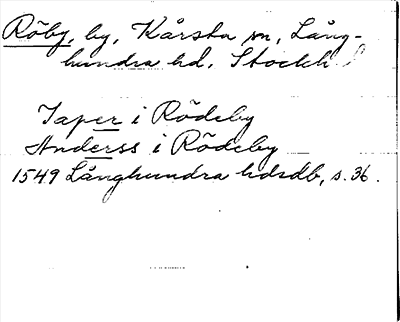 Röby, by, Kårsta sn, Lång-
hundra hd, Stockh. l
Japer i Rödeby
Anderss i Rödeby
1549 Långhundra hdsdb, s. 36.